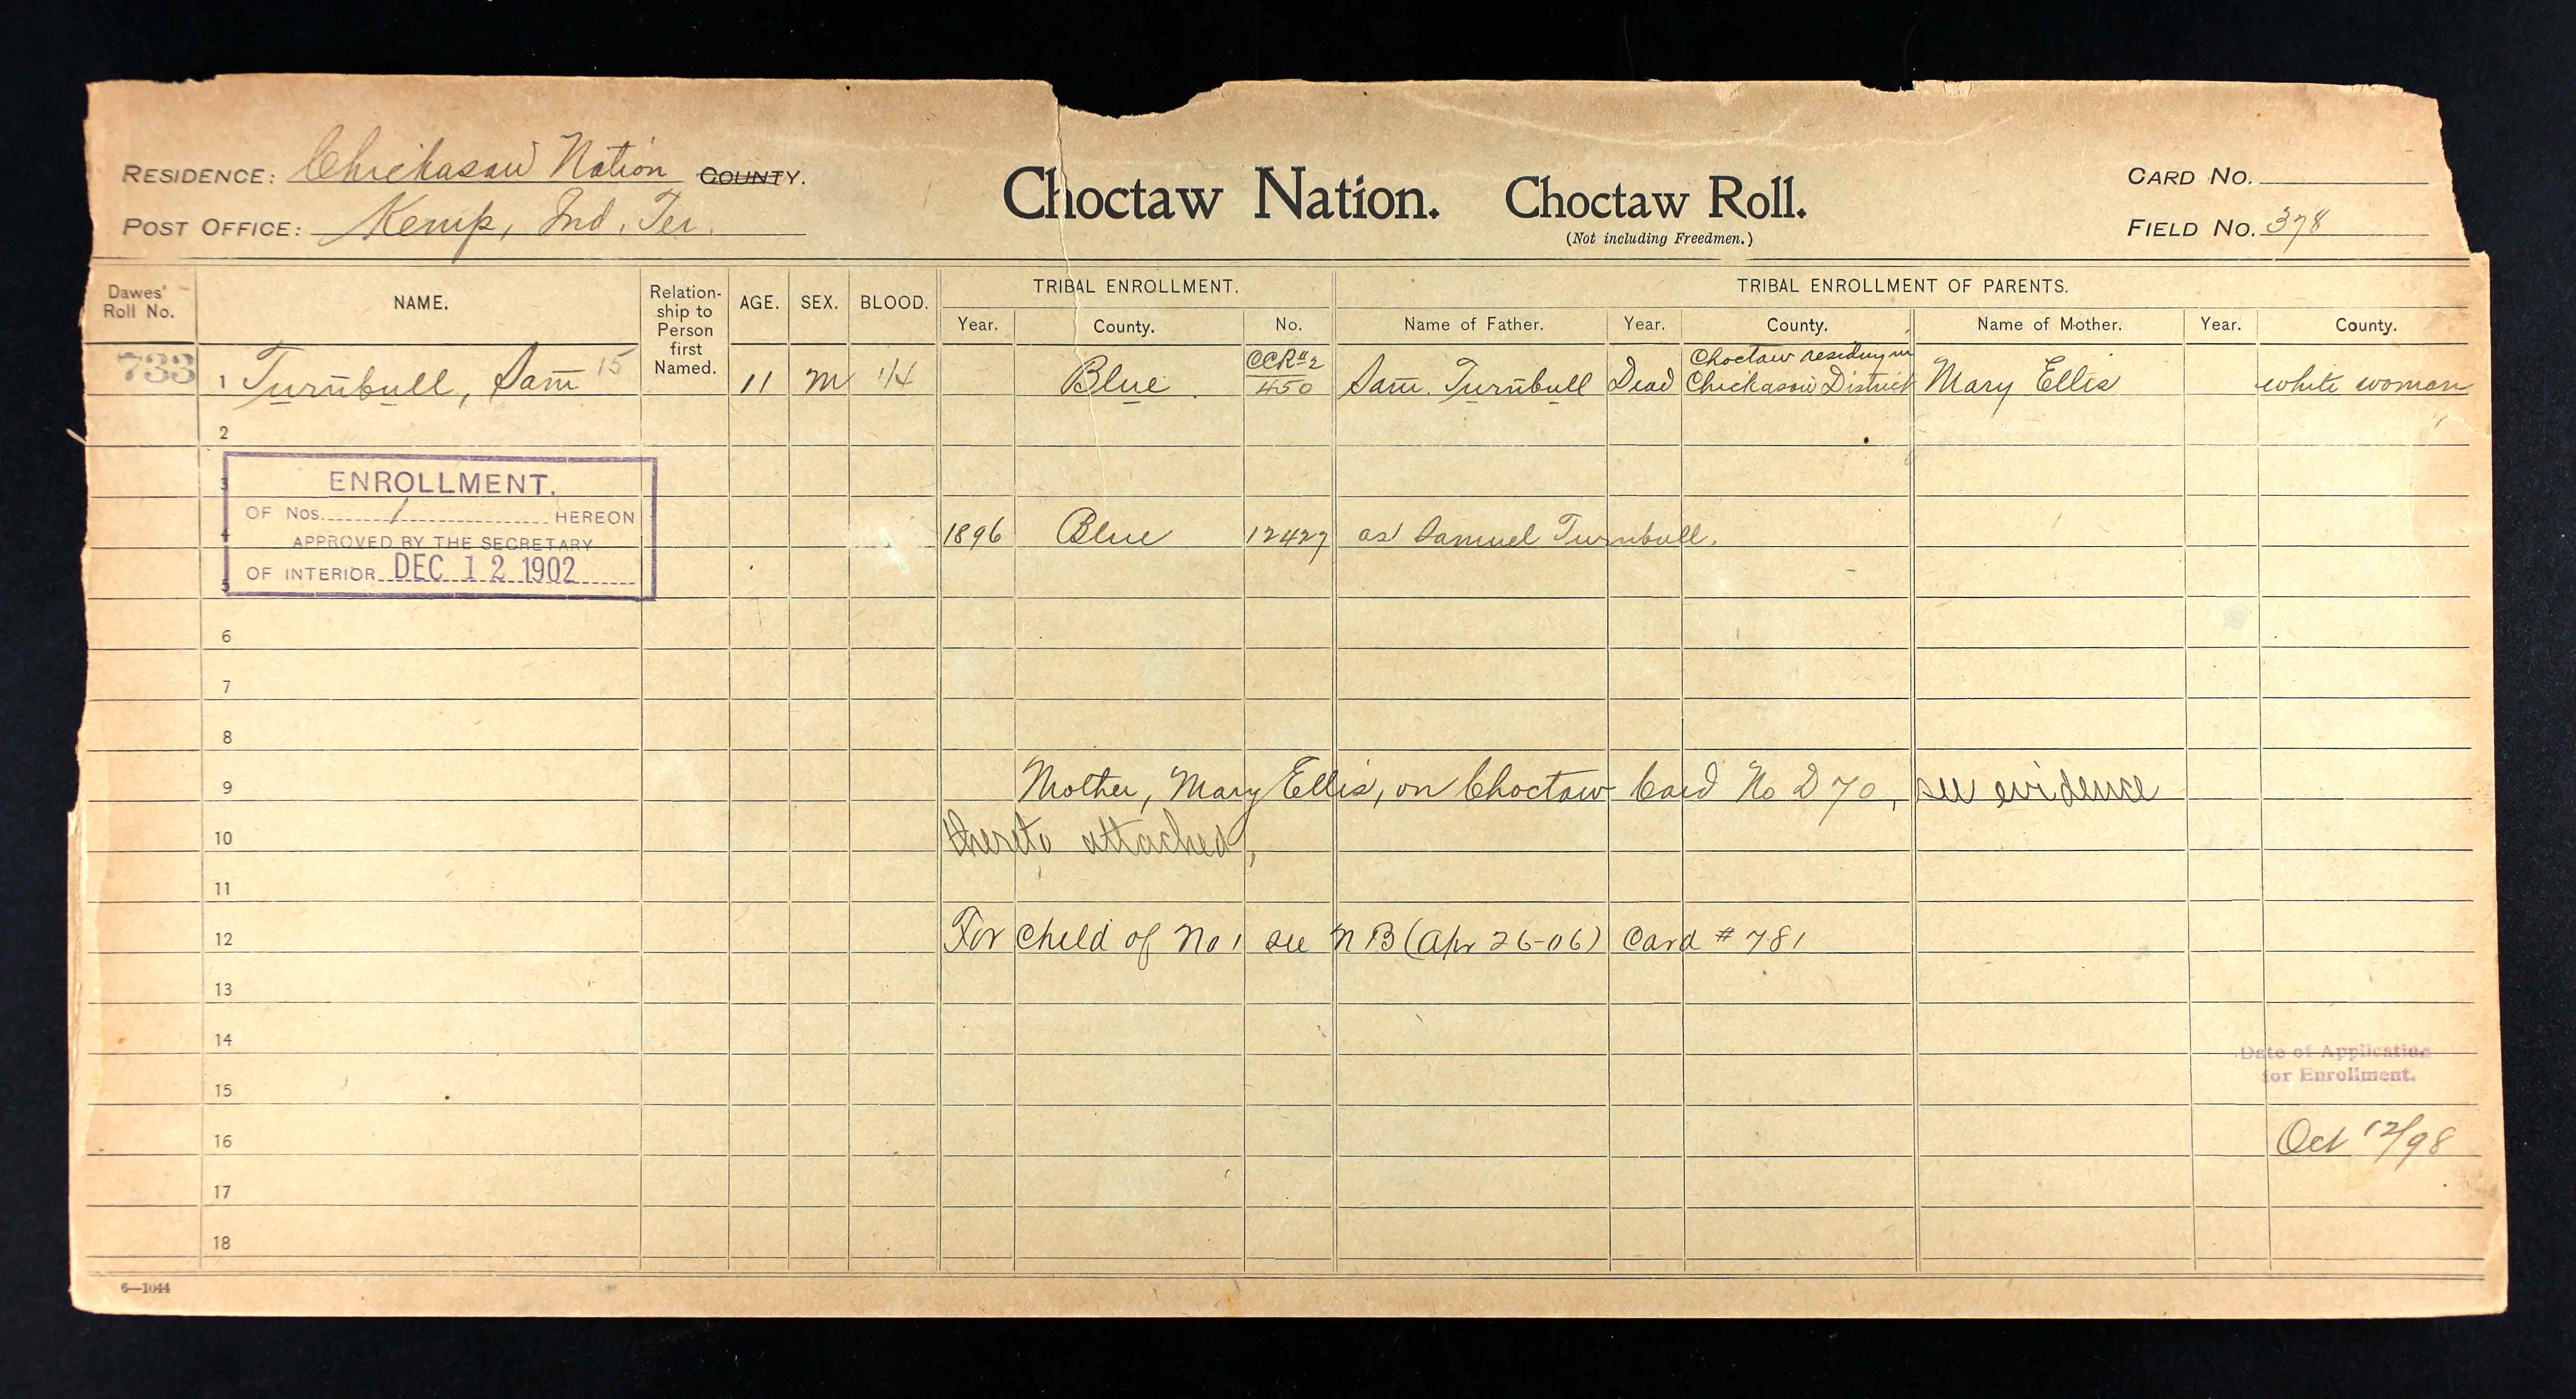 RESIDENCE: Chickasaw Nation COUNTY.
POST OFFICE: Kemp, Ind. Ter.
Choctaw Nation. Choctaw Roll.
(Not including Freedmen.)
CARD NO.
FIELD NO. 378
Dawes' Roll No.
NAME.
Relationship to Person first Named.
AGE.
SEX.
BLOOD.
TRIBAL ENROLLMENT.
Year. County. No.
TRIBAL ENROLLMENT OF PARENTS.
Name of Father. Year. County. Name of Mother. Year. County.
CCR#2 Choctaw residing in
733 1 Turnbull, Sam 15 11 M 1/4 Blue 450 Sam. Turnbull Dead Chickasaw District Mary Ellis white woman
2
3
ENROLLMENT.
OF Nos. 1 HEREON
APPROVED BY THE SECRETARY
OF INTERIOR DEC 12 1902
4 1896 Blue 12427 as Samuel Turnbull.
5
6
7
8
9 Mother, Mary Ellis, on Choctaw Card No D 70, see evidence
10 thereto attached,
11
12 For child of No 1 see NB (Apr 26-06) Card # 781
13
14
Date of Application
for Enrollment.
15
16 Oct 12/98
17
18
6—1044